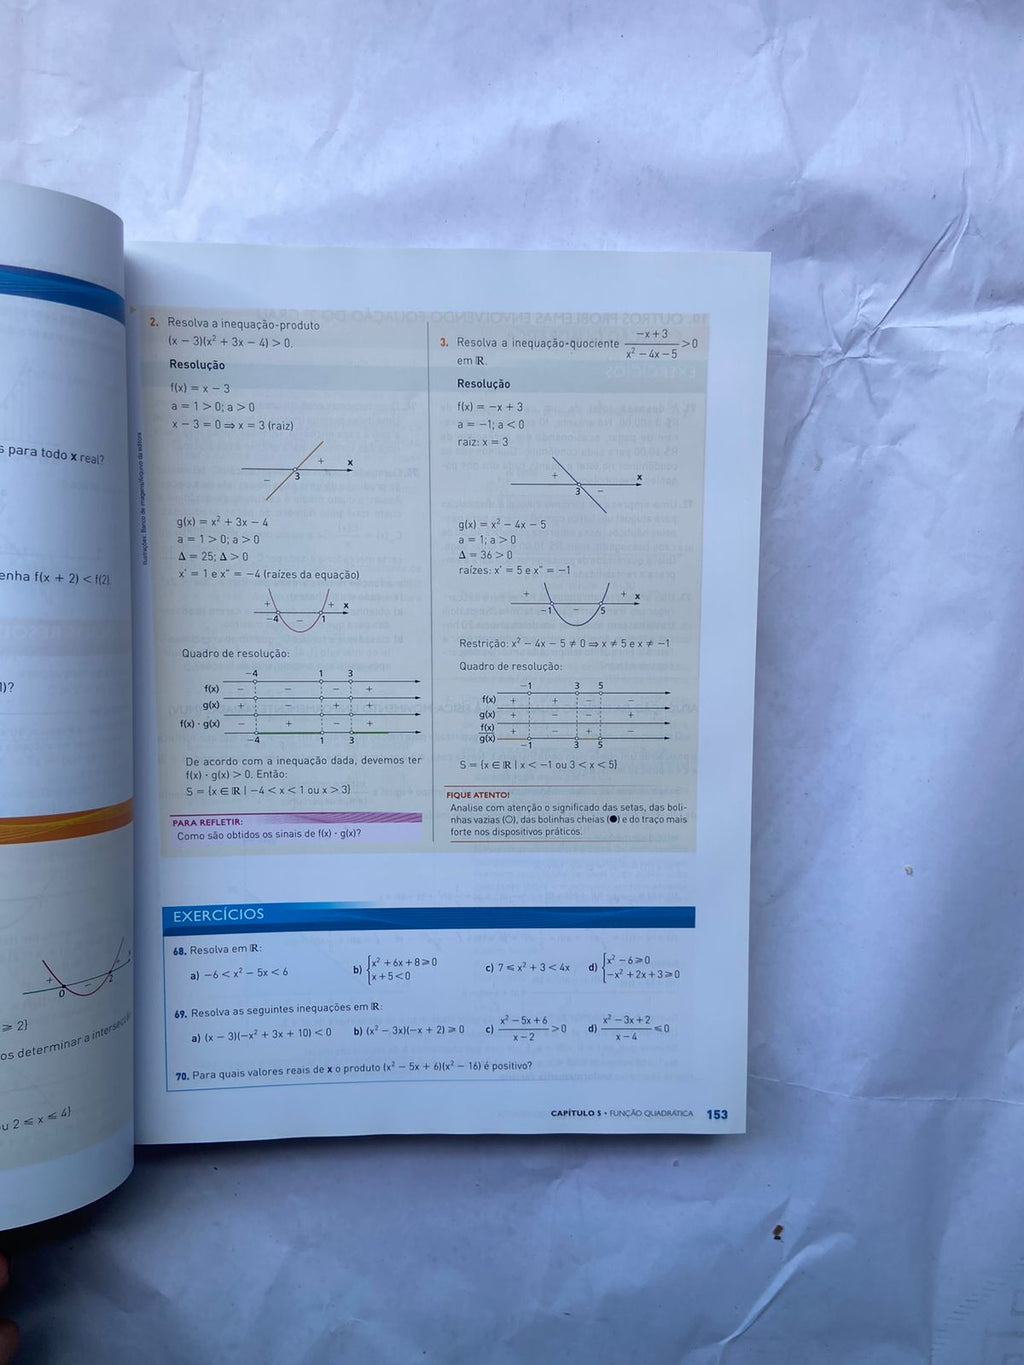 s para todo x real?
enha f(x + 2) < f(2).
1)?
⩾ 2}
os determinar a intersecção
ou 2 ⩽ x ⩽ 4}
Ilustrações: Banco de imagens/Arquivo da editora
2. Resolva a inequação-produto
(x − 3)(x² + 3x − 4) > 0.
Resolução
f(x) = x − 3
a = 1 > 0; a > 0
x − 3 = 0 ⇒ x = 3 (raiz)
+ x
− 3
g(x) = x² + 3x − 4
a = 1 > 0; a > 0
Δ = 25; Δ > 0
x' = 1 e x" = −4 (raízes da equação)
+ + x
−4 − 1
Quadro de resolução:
−4 1 3
f(x) − − − +
g(x) + − + +
f(x) · g(x) − + − +
−4 1 3
De acordo com a inequação dada, devemos ter
f(x) · g(x) > 0. Então:
S = {x ∈ ℝ | −4 < x < 1 ou x > 3}
PARA REFLETIR:
Como são obtidos os sinais de f(x) · g(x)?
3. Resolva a inequação-quociente (−x + 3)/(x² − 4x − 5) > 0
em ℝ.
Resolução
f(x) = −x + 3
a = −1; a < 0
raiz: x = 3
+ x
3 −
g(x) = x² − 4x − 5
a = 1; a > 0
Δ = 36 > 0
raízes: x' = 5 e x" = −1
+ + x
−1 − 5
Restrição: x² − 4x − 5 ≠ 0 ⇒ x ≠ 5 e x ≠ −1
Quadro de resolução:
−1 3 5
f(x) + + − −
g(x) + − − +
f(x)/g(x) + − + −
−1 3 5
S = {x ∈ ℝ | x < −1 ou 3 < x < 5}
FIQUE ATENTO!
Analise com atenção o significado das setas, das boli-
nhas vazias (○), das bolinhas cheias (●) e do traço mais
forte nos dispositivos práticos.
EXERCÍCIOS
68. Resolva em ℝ:
a) −6 < x² − 5x < 6 b) {x² + 6x + 8 ⩾ 0 x + 5 < 0 c) 7 ⩽ x² + 3 < 4x d) {x² − 6 ⩾ 0 −x² + 2x + 3 ⩾ 0
69. Resolva as seguintes inequações em ℝ:
a) (x − 3)(−x² + 3x + 10) < 0 b) (x² − 3x)(−x + 2) ⩾ 0 c) (x² − 5x + 6)/(x − 2) > 0 d) (x² − 3x + 2)/(x − 4) ⩽ 0
70. Para quais valores reais de x o produto (x² − 5x + 6)(x² − 16) é positivo?
CAPÍTULO 5 • FUNÇÃO QUADRÁTICA 153